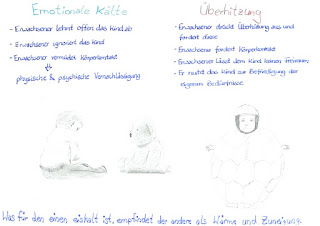 Emotionale Kälte
- Erwachsener lehnt offen das Kind ab
- Erwachsener ignoriert das Kind
- Erwachsener vermeidet Körperkontakt
⇓
physische & psychische Vernachlässigung
Überhitzung
- Erwachsener drückt Überhitzung aus und
fordert diese
- Erwachsener fordert Körperkontakt
- Erwachsener lässt dem Kind keinen Freiraum
- Er nutzt das Kind zur Befriedigung der
eigenen Bedürfnisse
Was für den einen eiskalt ist, empfindet der andere als Wärme und Zuneigung.